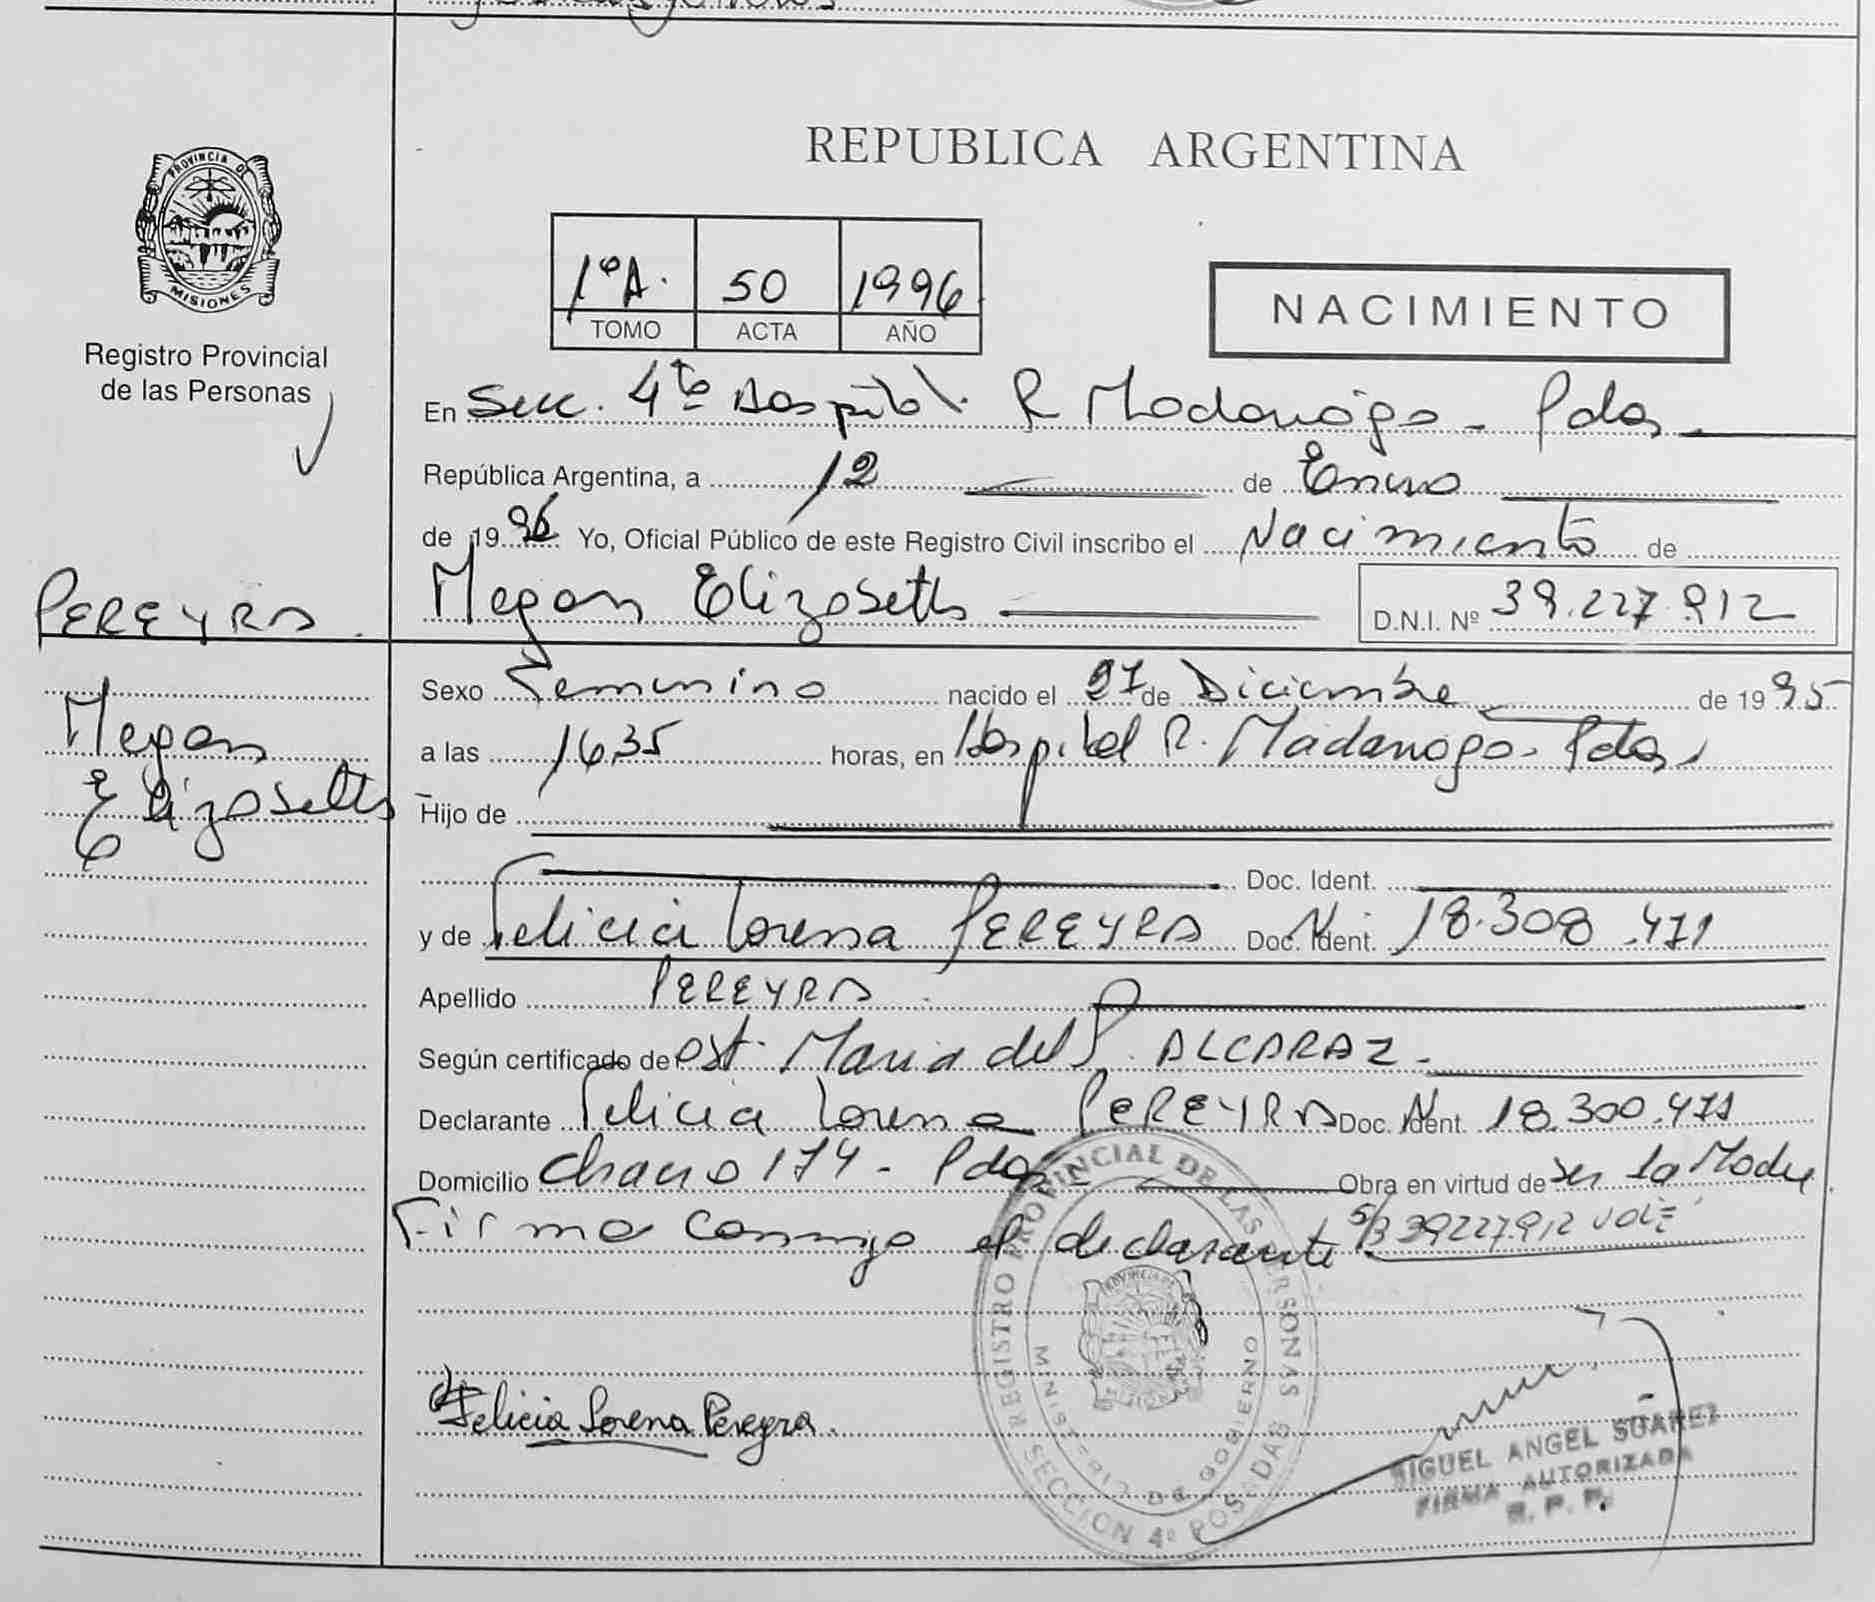 PROVINCIA DE
MISIONES
Registro Provincial
de las Personas
PEREYRA.
Megan
Elizabeth
REPUBLICA ARGENTINA
1º A. 50 1996
TOMO ACTA AÑO
NACIMIENTO
En Secc. 4ta Hospital R Madariaga - Pdas
República Argentina, a 12 de Enero
de 1996 Yo, Oficial Público de este Registro Civil inscribo el Nacimiento de
Megan Elizabeth D.N.I. Nº 39.227.912
Sexo Femenino nacido el 27 de Diciembre de 1995
a las 1635 horas, en Hospital R. Madariaga - Pdas
Hijo de
Doc. Ident.
y de Felicia Lorena PEREYRA Doc. Ident. 18.308.471
Apellido PEREYRA
Según certificado de Obst. Maria del P. ALCARAZ
Declarante Felicia Lorena PEREYRA Doc. Ident. 18.300.471
Domicilio Chaco 174 - Pdas Obra en virtud de ser la Madre
Firma conmigo el declarante S/B 39227.912 VALE
Felicia Lorena Pereyra.
REGISTRO PROVINCIAL DE LAS PERSONAS
MINISTERIO DE GOBIERNO
SECCION 4º POSADAS
MIGUEL ANGEL SUAREZ
FIRMA AUTORIZADA
R. P. P.